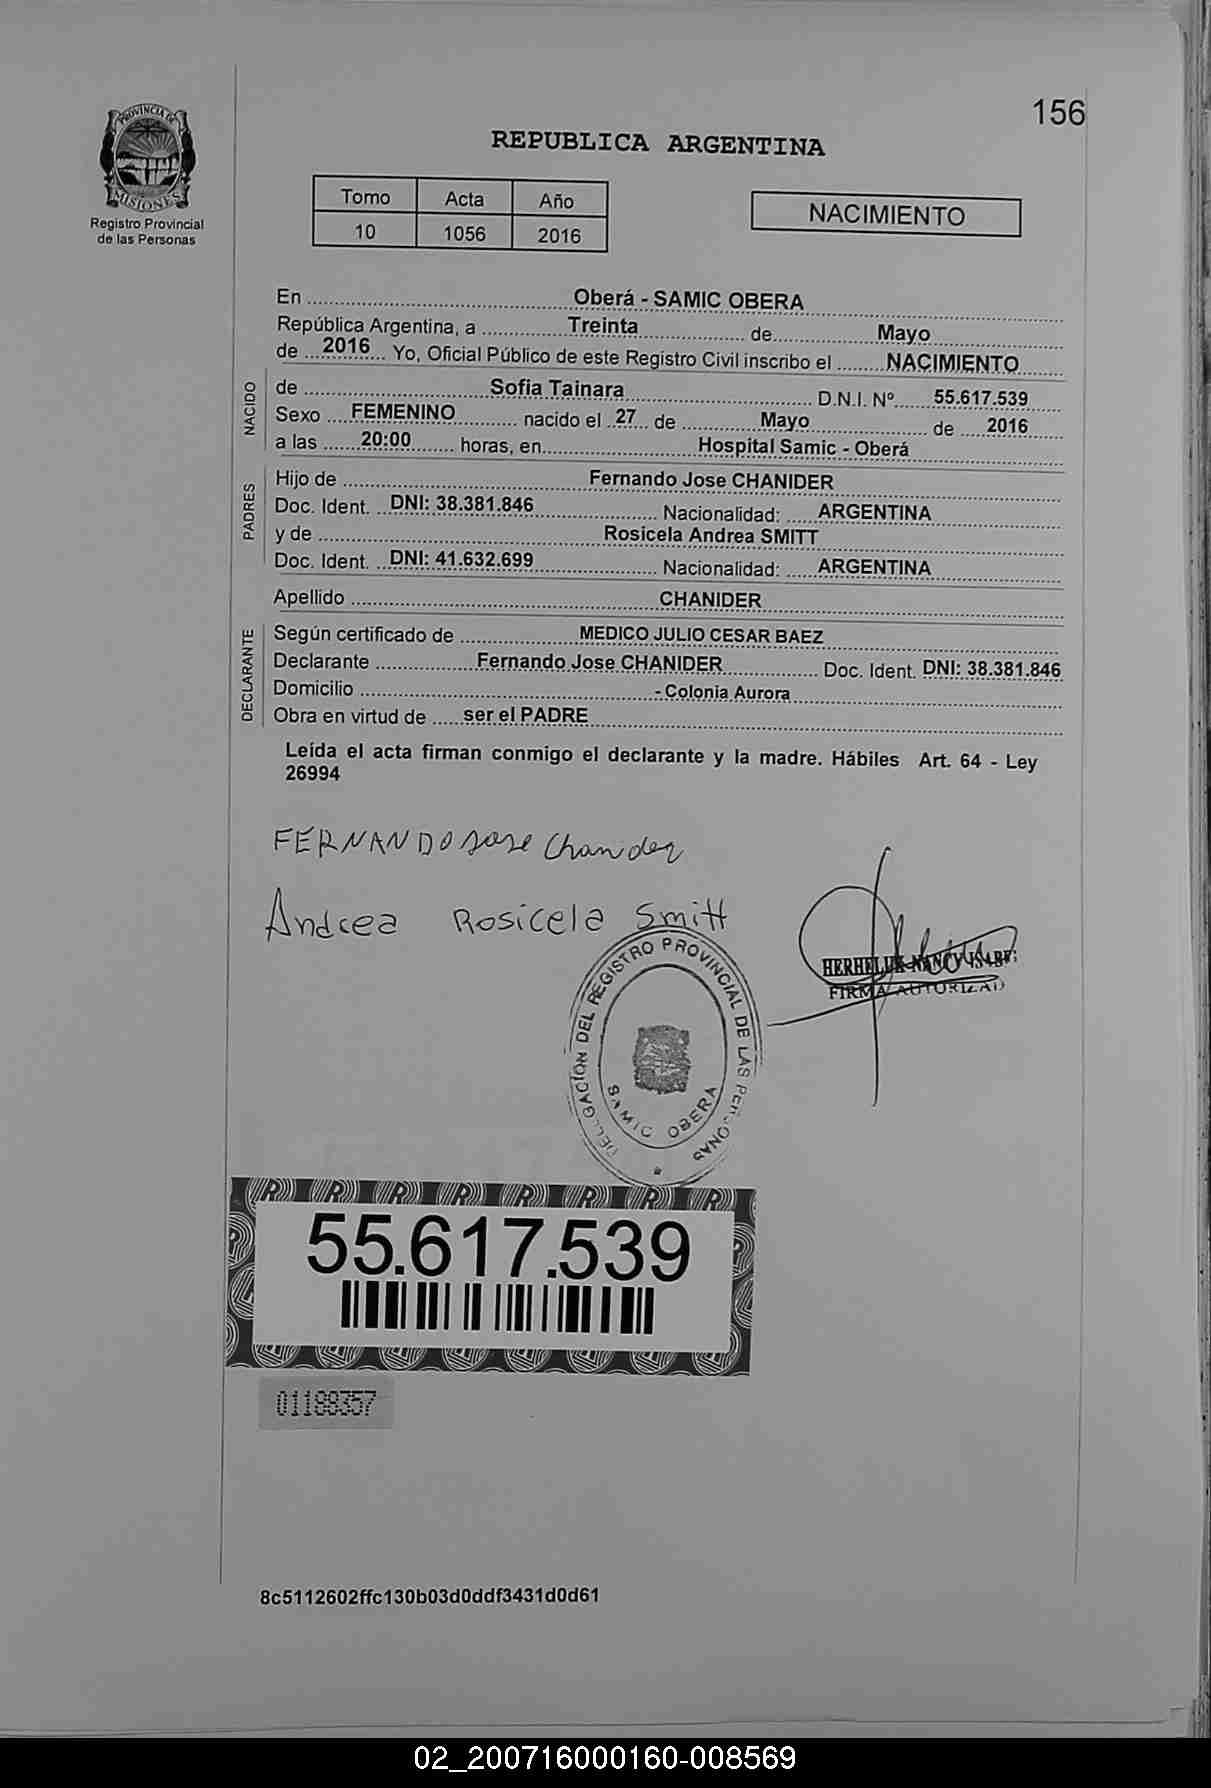 156
PROVINCIA DE
MISIONES
Registro Provincial
de las Personas
REPUBLICA ARGENTINA
Tomo Acta Año
10 1056 2016
NACIMIENTO
En ........ Oberá - SAMIC OBERA
República Argentina, a ........ Treinta ........ de ........ Mayo
de .... 2016 ... Yo, Oficial Público de este Registro Civil inscribo el ........ NACIMIENTO
NACIDO
de ........ Sofia Tainara ........ D.N.I. Nº ...... 55.617.539
Sexo .... FEMENINO ........ nacido el .. 27 ... de ........ Mayo ........ de ..... 2016
a las ...... 20:00 ........ horas, en ........ Hospital Samic - Oberá
PADRES
Hijo de ........ Fernando Jose CHANIDER
Doc. Ident. .. DNI: 38.381.846 ........ Nacionalidad: ...... ARGENTINA
y de ........ Rosicela Andrea SMITT
Doc. Ident. .. DNI: 41.632.699 ........ Nacionalidad: ...... ARGENTINA
Apellido ........ CHANIDER
DECLARANTE
Según certificado de ........ MEDICO JULIO CESAR BAEZ
Declarante ........ Fernando Jose CHANIDER ........ Doc. Ident. DNI: 38.381.846
Domicilio ........ - Colonia Aurora
Obra en virtud de ..... ser el PADRE
Leída el acta firman conmigo el declarante y la madre. Hábiles Art. 64 - Ley
26994
FERNANDO Jose Chanider
Andrea Rosicela Smitt
NANCY
FIRMA AUTORIZAD
DELEGACION DEL REGISTRO PROVINCIAL DE LAS PERSONAS
SAMIC OBERA
55.617.539
01188357
8c5112602ffc130b03d0ddf3431d0d61
02_200716000160-008569